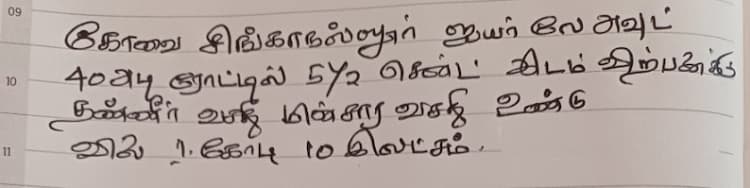 09
கோவை சிங்காநல்லூர் ஐயர் லே அவுட்
10 40 அடி ரோட்டில் 5½ சென்ட் இடம் விற்பனைக்கு
தண்ணீர் வசதி மின்சார வசதி உண்டு
11 விலை 1. கோடி 10 இலட்சம்.